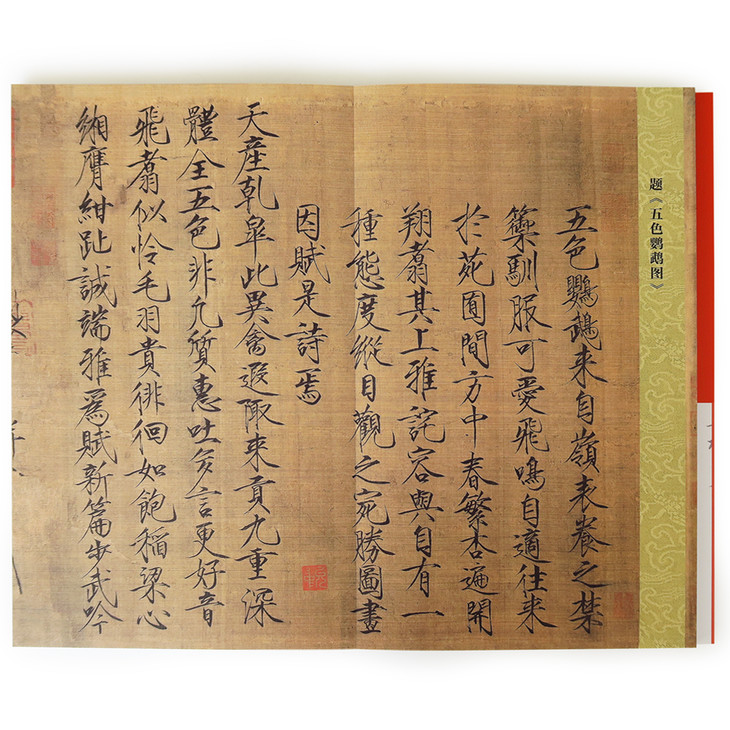 题《五色鹦鹉图》
五色鸚鵡来自嶺表養之禁
籞馴服可愛飛鳴自適往来
於苑囿間方中春繁杏遍開
翔翥其上雅詫容與自有一
種態度縱目觀之宛勝圖畫
因賦是詩焉
天産乾皐此異禽遐陬来貢九重深
體全五色非凡質惠吐多言更好音
飛翥似怜毛羽貴徘徊如飽稻粱心
緗膺紺趾誠端雅爲賦新篇步武吟